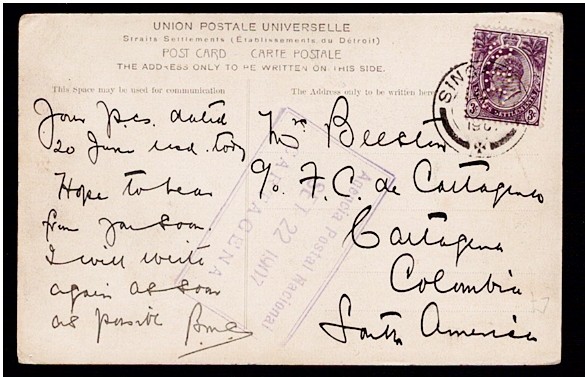 UNION POSTALE UNIVERSELLE
Straits Settlements (Établissements du Détroit)
POST CARD — CARTE POSTALE
THE ADDRESS ONLY TO BE WRITTEN ON THIS SIDE.
This Space may be used for communication
The Address only to be written here
Your p.cs. dated
20 June recd. today
Hope to hear
from you soon.
I will write
again as soon
as possible
Mr Beeston
c/o F. C. de Cartagena
Cartagena
Colombia
South America
Agencia Postal Nacional
22 1907
CARTAGENA
SING